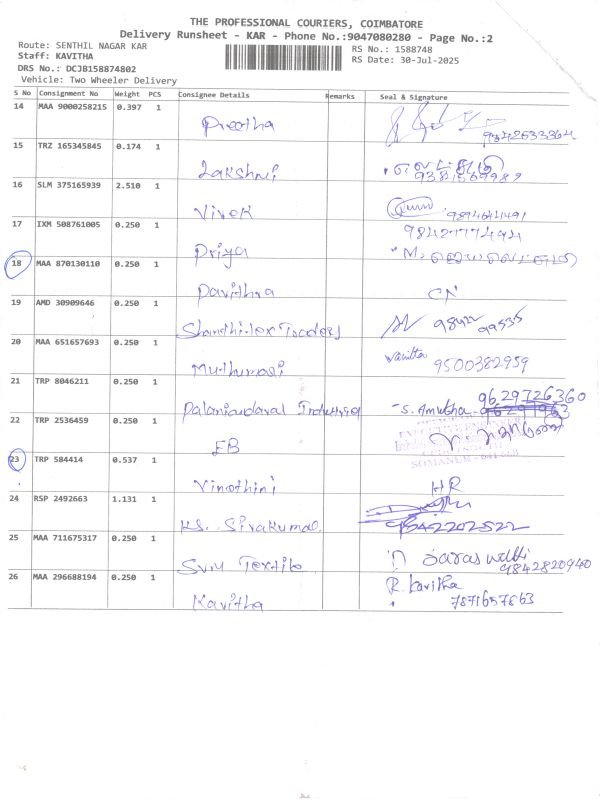 THE PROFESSIONAL COURIERS, COIMBATORE
Delivery Runsheet - KAR - Phone No.:9047080280 - Page No.:2
Route: SENTHIL NAGAR KAR
RS No.: 1588748
Staff: KAVITHA
RS Date: 30-Jul-2025
DRS No.: DCJB158874802
Vehicle: Two Wheeler Delivery
S No Consignment No Weight PCS Consignee Details Remarks Seal & Signature
14 MAA 9000258215 0.397 1 Preetha
15 TRZ 165345845 0.174 1 Lakshmi
16 SLM 375165939 2.510 1 Vivek
17 IXM 508761005 0.250 1 Priya 9842777494
18 MAA 870130110 0.250 1 Pavithra CN
19 AMD 30909646 0.250 1 Shanthi tex Traders 98422 99535
20 MAA 651657693 0.250 1 Muthumari Vanitha 9500382959
21 TRP 8046211 0.250 1 Palaniandaval 9629726360
S. Amutha
22 TRP 2536459 0.250 1 EB
SOMANUR - 641 668
23 TRP 584414 0.537 1 Vinothini HR
24 RSP 2492663 1.131 1 KS. Sivakumar 9842202522
25 MAA 711675317 0.250 1 SVM Textile Saraswathi
9842820940
26 MAA 296688194 0.250 1 Kavitha R. Kavitha
7871657863